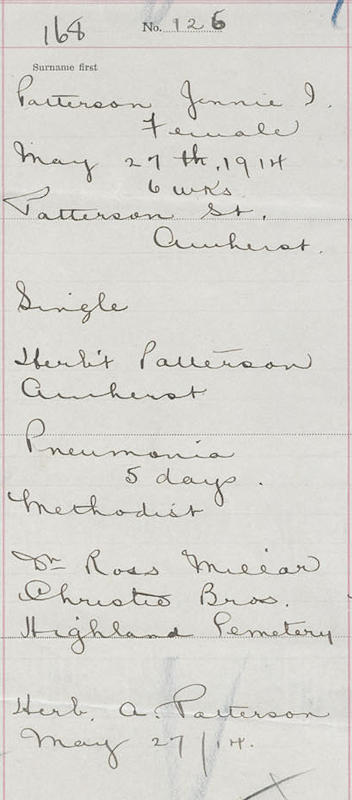 168
No. 126
Surname first
Patterson Jennie I.
Female
May 27th, 1914
6 wks
Patterson St.
Amherst.
Single
Herb't Patterson
Amherst
Pneumonia
5 days.
Methodist
Dr Ross Millar
Christie Bros.
Highland Cemetery
Herb. A. Patterson
May 27/14.